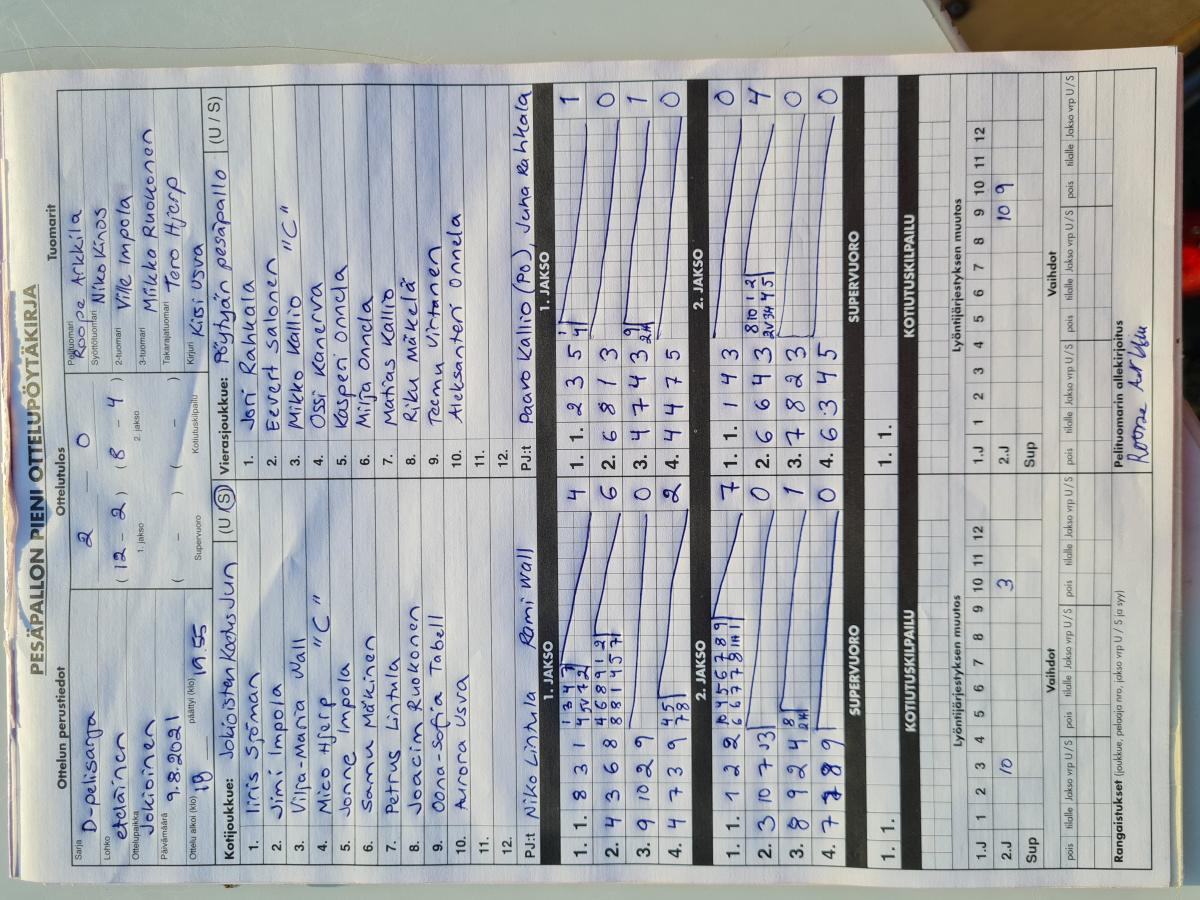 PESÄPALLON PIENI OTTELUPÖYTÄKIRJA
Ottelun perustiedot
Ottelutulos
Tuomarit
Sarja
D-pelisarja
Lohko
eteläinen
Ottelupaikka
Jokioinen
Päivämäärä
9.8.2021
Ottelu alkoi (klo) 18 päättyi (klo) 19.55
2 — 0
( 12 – 2 ) ( 8 – 4 )
1. jakso 2. jakso
( – ) ( – )
Supervuoro Kotiutuskilpailu
Pelituomari
Roope Arkkila
Syöttötuomari Niko Kinos
2-tuomari Ville Impola
3-tuomari Mikko Ruokonen
Takarajatuomari Tero Hjerp
Kirjuri Kirsi Usva
Kotijoukkue: Jokioisten Koetus Jun (U / S)
1. Iiris Sjöman
2. Jimi Impola
3. Vilja-Maria Wall
4. Mico Hjerp "C"
5. Jonne Impola
6. Samu Mäkinen
7. Petrus Lintula
8. Joacim Ruokonen
9. Oona-Sofia Tabell
10. Aurora Usva
11.
12.
PJ:t Niko Lintula Rami Wall
Vierasjoukkue: Pöytyän pesäpallo (U / S)
1. Joni Rahkala
2. Eevert Salonen
3. Mikko Kallio "C"
4. Ossi Kanerva
5. Kasperi Onnela
6. Milja Onnela
7. Matias Kallio
8. Riku Mäkelä
9. Teemu Virtanen
10. Aleksanteri Onnela
11.
12.
PJ:t Paavo Kallio (PO), Juha Rahkala
1. JAKSO
1. 1. 8 3 1 4
2. 4 3 6 8 6
3. 9 10 2 9 0
4. 4 7 3 9 2
2. JAKSO
1. 1. 1 2 2 7
2. 3 10 7 0
3. 8 9 2 4 1
4. 7 8 9 0
SUPERVUORO
1. 1.
KOTIUTUSKILPAILU
1. JAKSO
1. 1. 2 3 5 1
2. 6 8 1 3 0
3. 4 7 4 3 1
4. 4 4 7 5 0
2. JAKSO
1. 1. 1 4 3 0
2. 6 6 4 3 4
3. 7 8 2 3 0
4. 6 3 4 5 0
SUPERVUORO
1. 1.
KOTIUTUSKILPAILU
Lyöntijärjestyksen muutos
1.J 1 2 3 4 5 6 7 8 9 10 11 12
2.J 10 3
Sup
Vaihdot
pois tilalle Jakso vrp U / S pois tilalle Jakso vrp U / S pois tilalle Jakso vrp U / S
Lyöntijärjestyksen muutos
1.J 1 2 3 4 5 6 7 8 9 10 11 12
2.J 10 9
Sup
Vaihdot
pois tilalle Jakso vrp U / S pois tilalle Jakso vrp U / S pois tilalle Jakso vrp U / S
Rangaistukset (joukkue, pelaaja nro, jakso vrp U / S ja syy)
Pelituomarin allekirjoitus